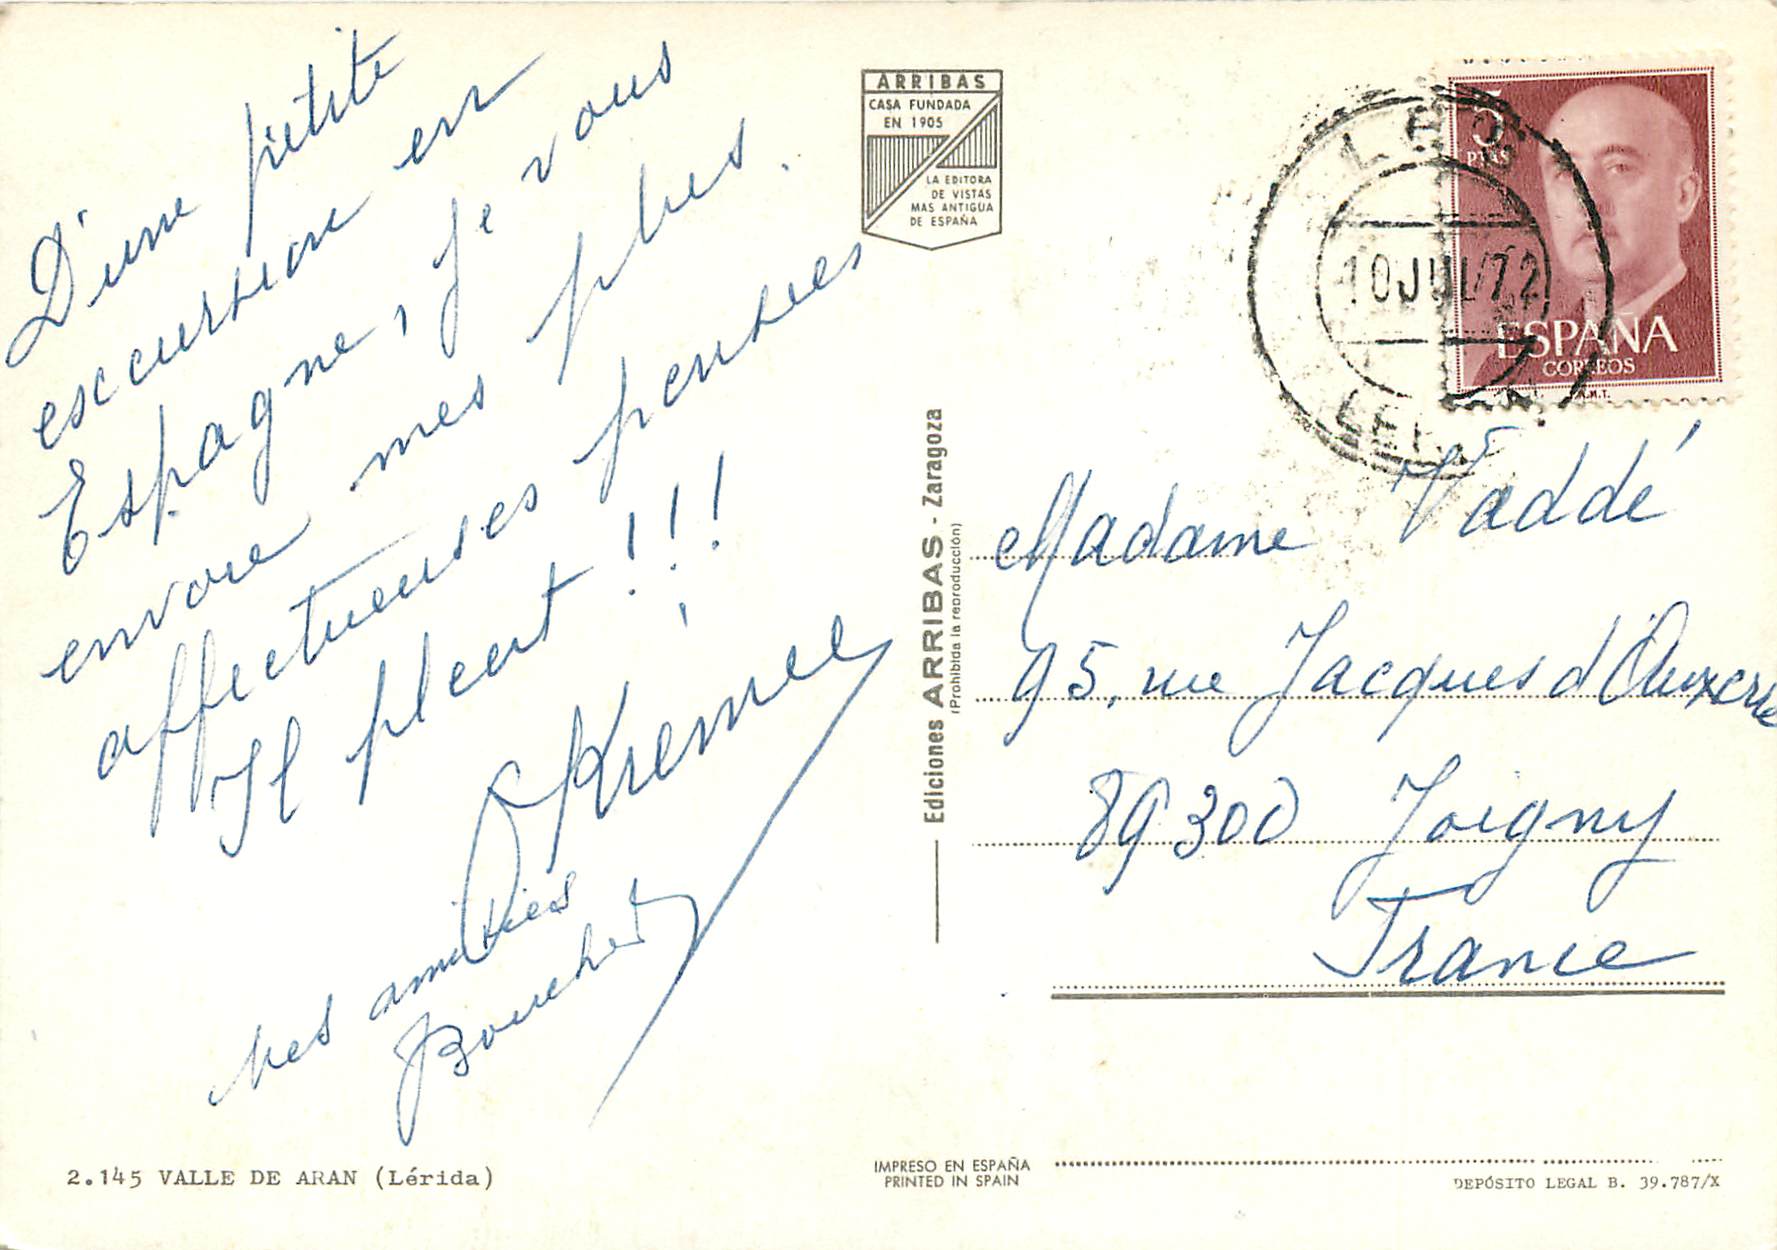 D'une petite
excursion en
Espagne, je vous
envoie mes plus
affectueuses pensées.
Il pleut !!!
Krémer
mes amitiés
Bouchet
ARRIBAS
CASA FUNDADA
EN 1905
LA EDITORA
DE VISTAS
MAS ANTIGUA
DE ESPAÑA
Ediciones ARRIBAS - Zaragoza
(Prohibida la reproducción)
5
PTAS
ESPAÑA
CORREOS
10 JUL 72
Madame Vaddé
95, rue Jacques d'Auxerre
89300 Joigny
France
2.145 VALLE DE ARAN (Lérida)
IMPRESO EN ESPAÑA
PRINTED IN SPAIN
DEPÓSITO LEGAL B. 39.787/X